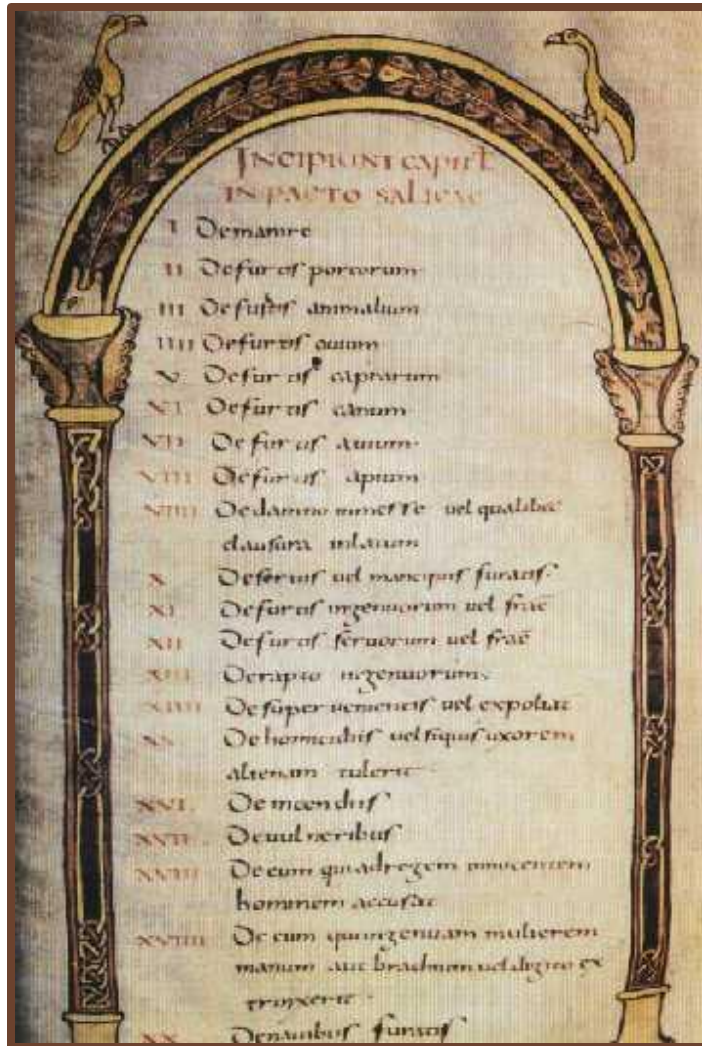 INCIPIUNT CAPIT
IN PACTO SALICAE
I De manire
II De furtis porcorum
III De furtis animalium
IIII De furtis ouium
V De furtis caprarum
VI De furtis canum
VII De furtis auium
VIII De furtis apium
VIIII De damno in messe uel qualibet
clausura inlatum
X De seruis uel mancipiis furatis
XI De furtis ingenuorum uel frac̄
XII De furtis seruorum uel frac̄
XIII De rapto ingenuorum
XIIII De superuenientis uel expoliat
XV De homicidiis uel siquis uxorem
alienam tulerit
XVI. De incendiis
XVII. De uulneribus
XVIII De eum qui ad regem innocentem
hominem accusat
XVIIII De eum qui ingenuam mulierem
manum aut brachium uel digito ex
trinxerit
XX De nauibus furatis